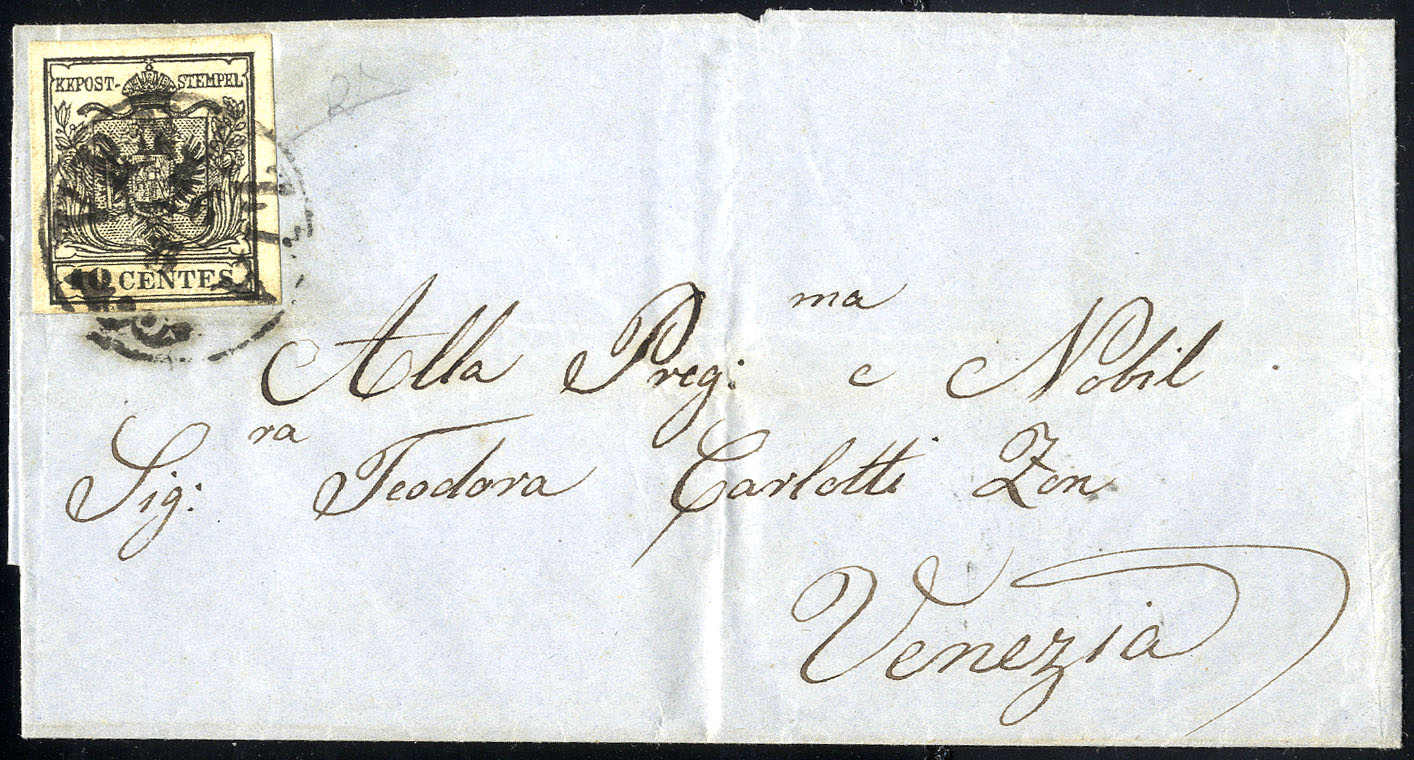 KKPOST-STEMPEL
10 CENTES
Alla Preg:ma e Nobil
Sig:ra Teodora Carlotti Zon
Venezia